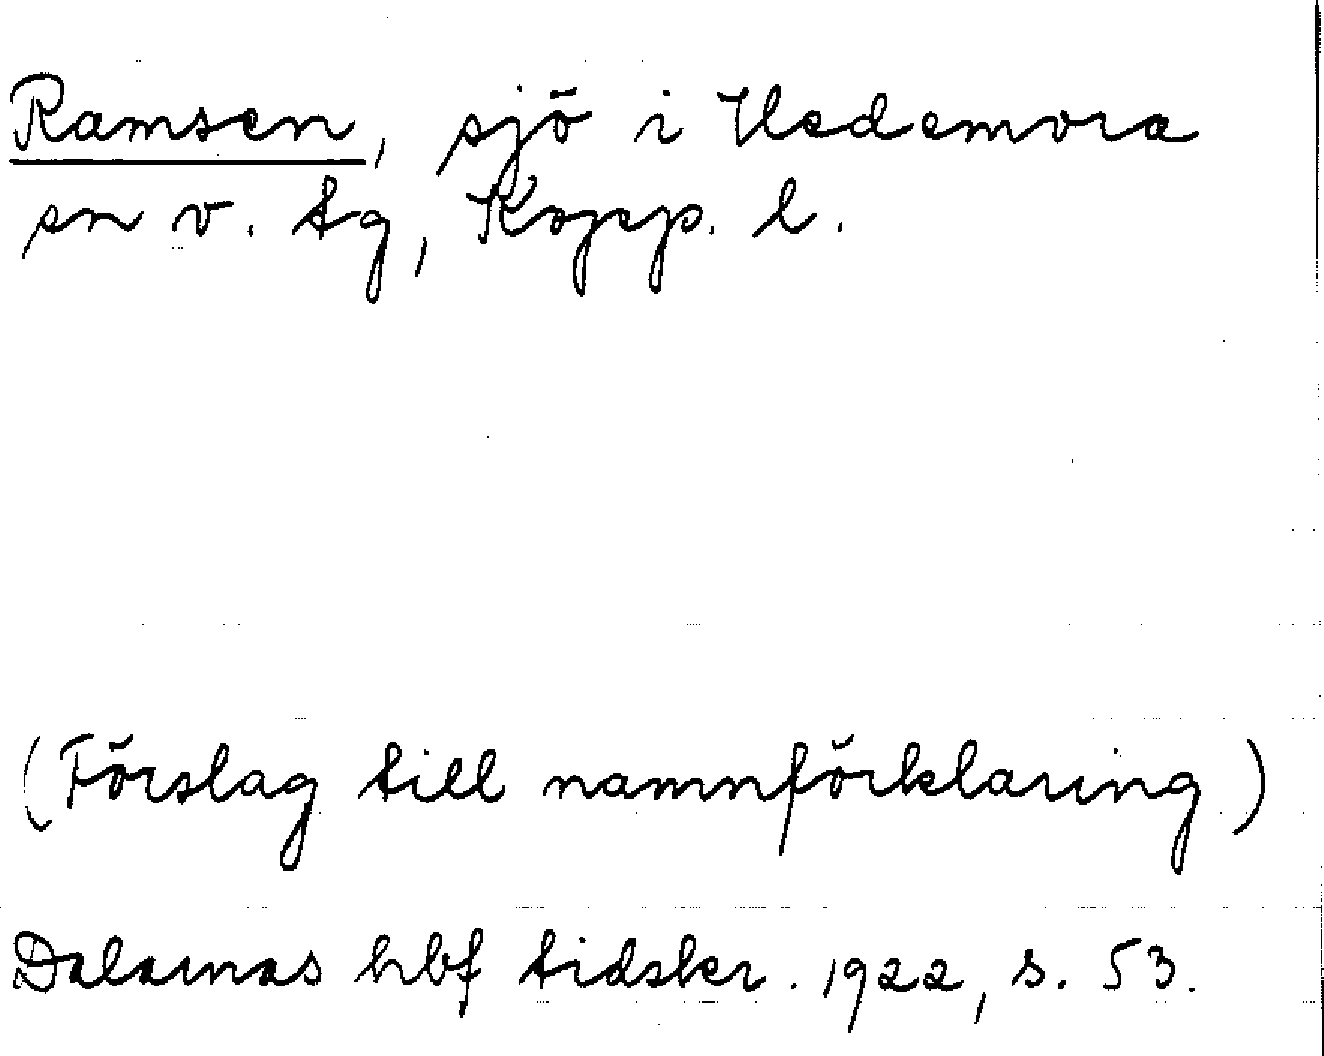 Ramsen, sjö i Hedemora
sn v. tg, Kopp. l.
(Förslag till namnförklaring)
Dalarnas hbf tidskr. 1922, s. 53.